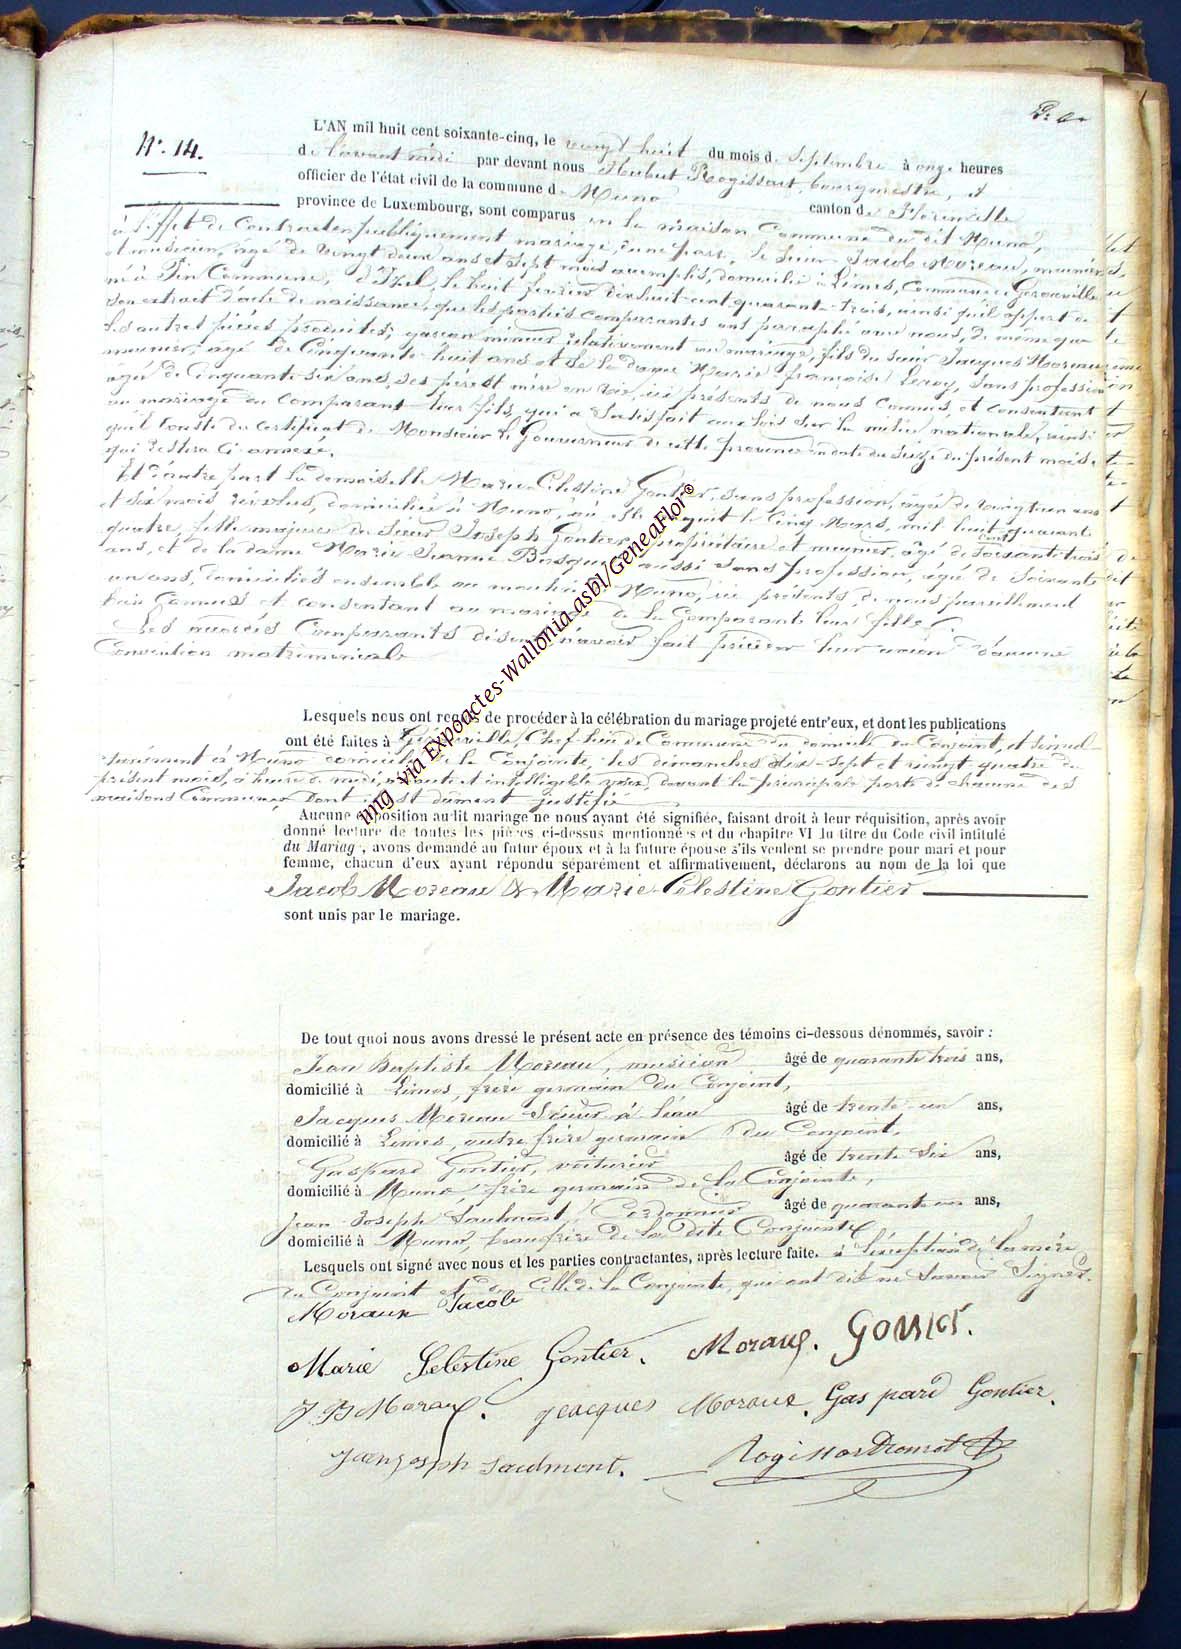 N°. 14.
L'AN mil huit cent soixante-cinq, le vingt huit du mois de Septembre à onze heures
de l'avant midi par devant nous Hubert Rogissart, bourgmestre, et
officier de l'état civil de la commune de Muno canton de Florenville
province de Luxembourg, sont comparus en la maison Commune du dit Muno,
à l'effet de Contracter publiquement mariage, d'une part, le Sieur Jacob Moreau, meunier
et musicien, âgé de vingt deux ans et sept mois accomplis, domicilié à Limes, Commune de Gérouville
né à Pin Commune, d'Izel, le huit février dixhuit cent quarante-trois, ainsi qu'il appert de
son extrait d'acte de naissance, que les parties comparantes ont paraphé avec nous, de même que
les autres pièces produites, garçon mineur relativement au mariage, fils du sieur Jacques Moreau
meunier, âgé de Cinquante-huit ans et de la dame Marie françoise Leroy, sans profession
âgée de Cinquante six ans, ses père et mère en vie, ici présents de nous connus, et consentant
au mariage du Comparant leur fils, qui a Satisfait aux lois sur la milice nationale, ainsi
qu'il Conste du Certificat de Monsieur le Gouverneur de cette province en date du Seize du présent mois,
qui restera ci-annexé.
Et d'autre part la demoiselle Marie Célestine Gontier, sans profession, âgée de vingt un ans
et six mois révolus, domiciliée à Muno, où elle naquit le Cinq Mars, mil huit cent quarante
quatre, fille majeure du Sieur Joseph Gontier, propriétaire et meunier, âgé de soixante trois
ans, et de la dame Marie Jeanne aussi Sans profession, âgée de Soixante
un ans, domiciliés ensemble au moulin Muno, ici présents, de nous pareillement
bien Connus et consentant au mariage de la Comparante leur fille.
Les accordés Comparants disent n'avoir fait précéder leur union d'aucune
Convention matrimoniale
Lesquels nous ont requis de procéder à la célébration du mariage projeté entr'eux, et dont les publications
ont été faites à Gérouville, Chef-lieu de Commune du domicile du Conjoint, et simul-
tanément à Muno domicile de la Conjointe, les dimanches dix-sept et vingt quatre du
présent mois, à heure de midi, à haute et intelligible voix, devant la principale porte de chacune des
maisons Communes dont il est dûment justifié
Aucune opposition au dit mariage ne nous ayant été signifiée, faisant droit à leur réquisition, après avoir
donné lecture de toutes les pièces ci-dessus mentionnées et du chapitre VI du titre du Code civil intitulé
du Mariage, avons demandé au futur époux et à la future épouse s'ils veulent se prendre pour mari et pour
femme, chacun d'eux ayant répondu séparément et affirmativement, déclarons au nom de la loi que
Jacob Moreau & Marie Célestine Gontier
sont unis par le mariage.
De tout quoi nous avons dressé le présent acte en présence des témoins ci-dessous dénommés, savoir :
Jean Baptiste Moreau, musicien âgé de quarante trois ans,
domicilié à Limes, frère germain du Conjoint,
Jacques Moreau Scieur à l'eau âgé de trente-un ans,
domicilié à Limes, autre frère germain du Conjoint,
Gaspard Gontier, voiturier âgé de trente Six ans,
domicilié à Muno, frère germain de la Conjointe,
Jean-Joseph Saulmont, Cordonnier âgé de quarante un ans,
domicilié à Muno, beau frère de la dite Conjointe
Lesquels ont signé avec nous et les parties contractantes, après lecture faite. à l'exception de la mère
du Conjoint et de celle de la Conjointe, qui ont dit ne Savoir Signer.
Moraux Jacob
Marie Célestine Gontier. Moraux. Gontier.
J B Moraux. Jacques Moraux. Gaspard Gontier.
Jean joseph Saulmont.
img via Expoactes-Wallonia asbl/GeneaFlor®